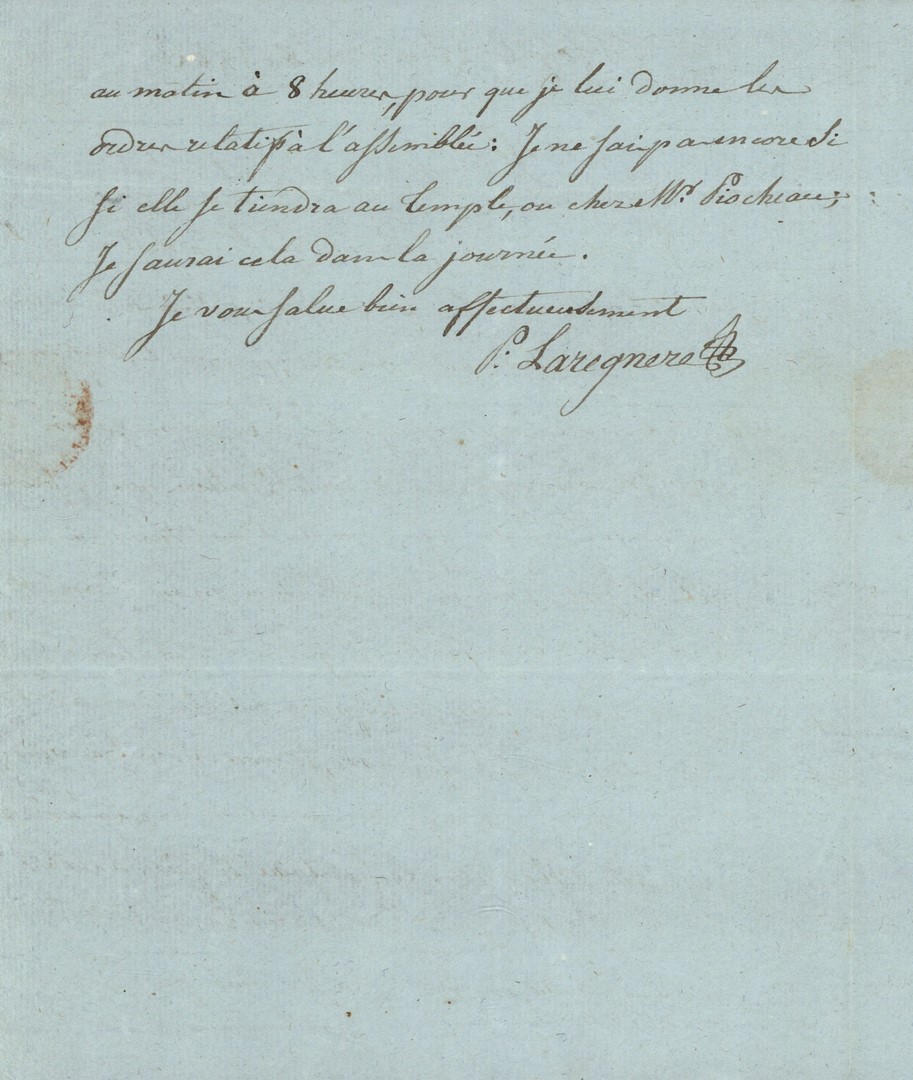 au matin à 8 heures, pour que je lui donne les
ordres relatifs à l'assemblée: Je ne sais pas encore si
si elle se tiendra au Temple, ou chez Mr. Piocheau;
Je saurai cela dans la journée.
Je vous salue bien affectueusement
P: Laregnere